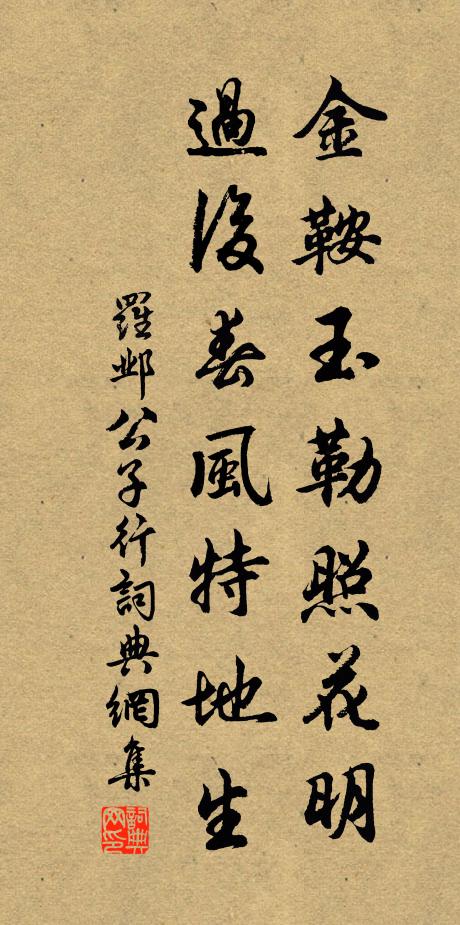 金鞍玉勒照花明
過後春風特地生
羅鄴公子行詞典網集
詞典網印